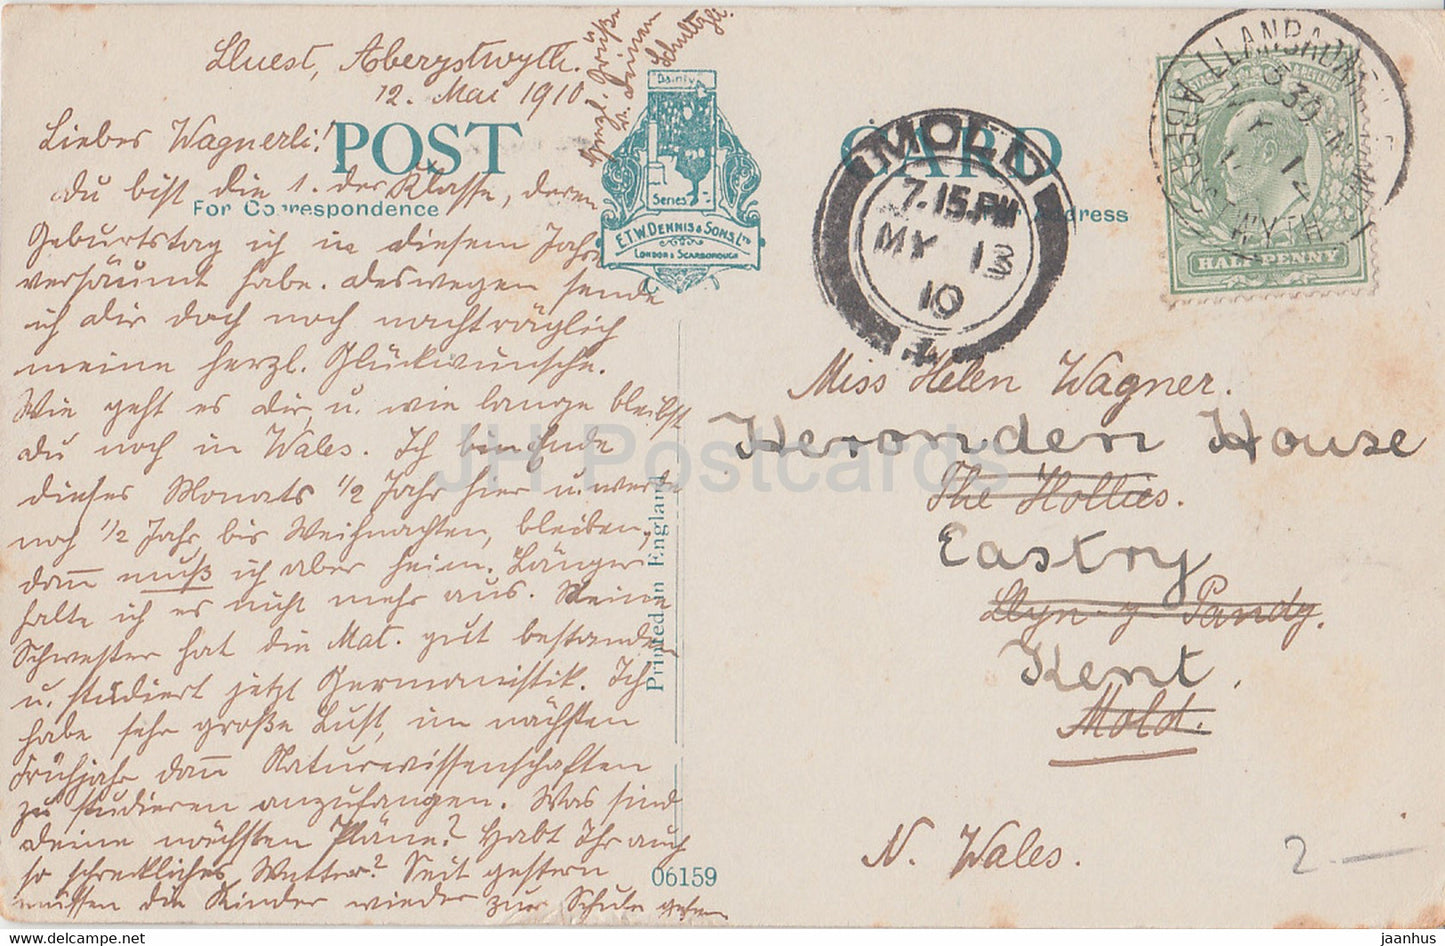 Lluest, Aberystwyth.
12. Mai 1910
Liebes Wagnerli!
du bist die 1. der Klasse, deren
Geburtstag ich in diesem Jahr
versäumt habe. deswegen sende
ich dir doch noch nachträglich
meine herzl. Glückwünsche.
Wie geht es dir u. wie lange bleibst
du noch in Wales. Ich beende
dieses Monats 1/2 Jahr hier u. werde
noch 1/2 Jahr, bis Weihnachten, bleiben,
dann muß ich aber heim. Länger
halte ich es nicht mehr aus. Meine
Schwester hat die Mat. gut bestanden
u. studiert jetzt Germanistik. Ich
habe sehr große Lust, im nächsten
Frühjahr dann Naturwissenschaften
zu studieren anzufangen. Was sind
deine nächsten Pläne? Habt Ihr auch
so schreckliches Wetter? Seit gestern
müssen die Kinder wieder zur Schule gehen
Grüße
v. deiner
POST CARD
For Correspondence
Address
Dainty
Series
E.T.W. DENNIS & SONS, LTD
LONDON & SCARBOROUGH
Printed in England
06159
MOLD
7.15.PM
MY 13
10
LLANBADARN
ABERYSTWYTH
HALFPENNY
Miss Helen Wagner.
Heronden House
The Hollies.
Eastry
Llyn-y-Pandy.
Kent.
Mold.
N. Wales.
2 —
JH Postcards
delcampe.net
jaanhus